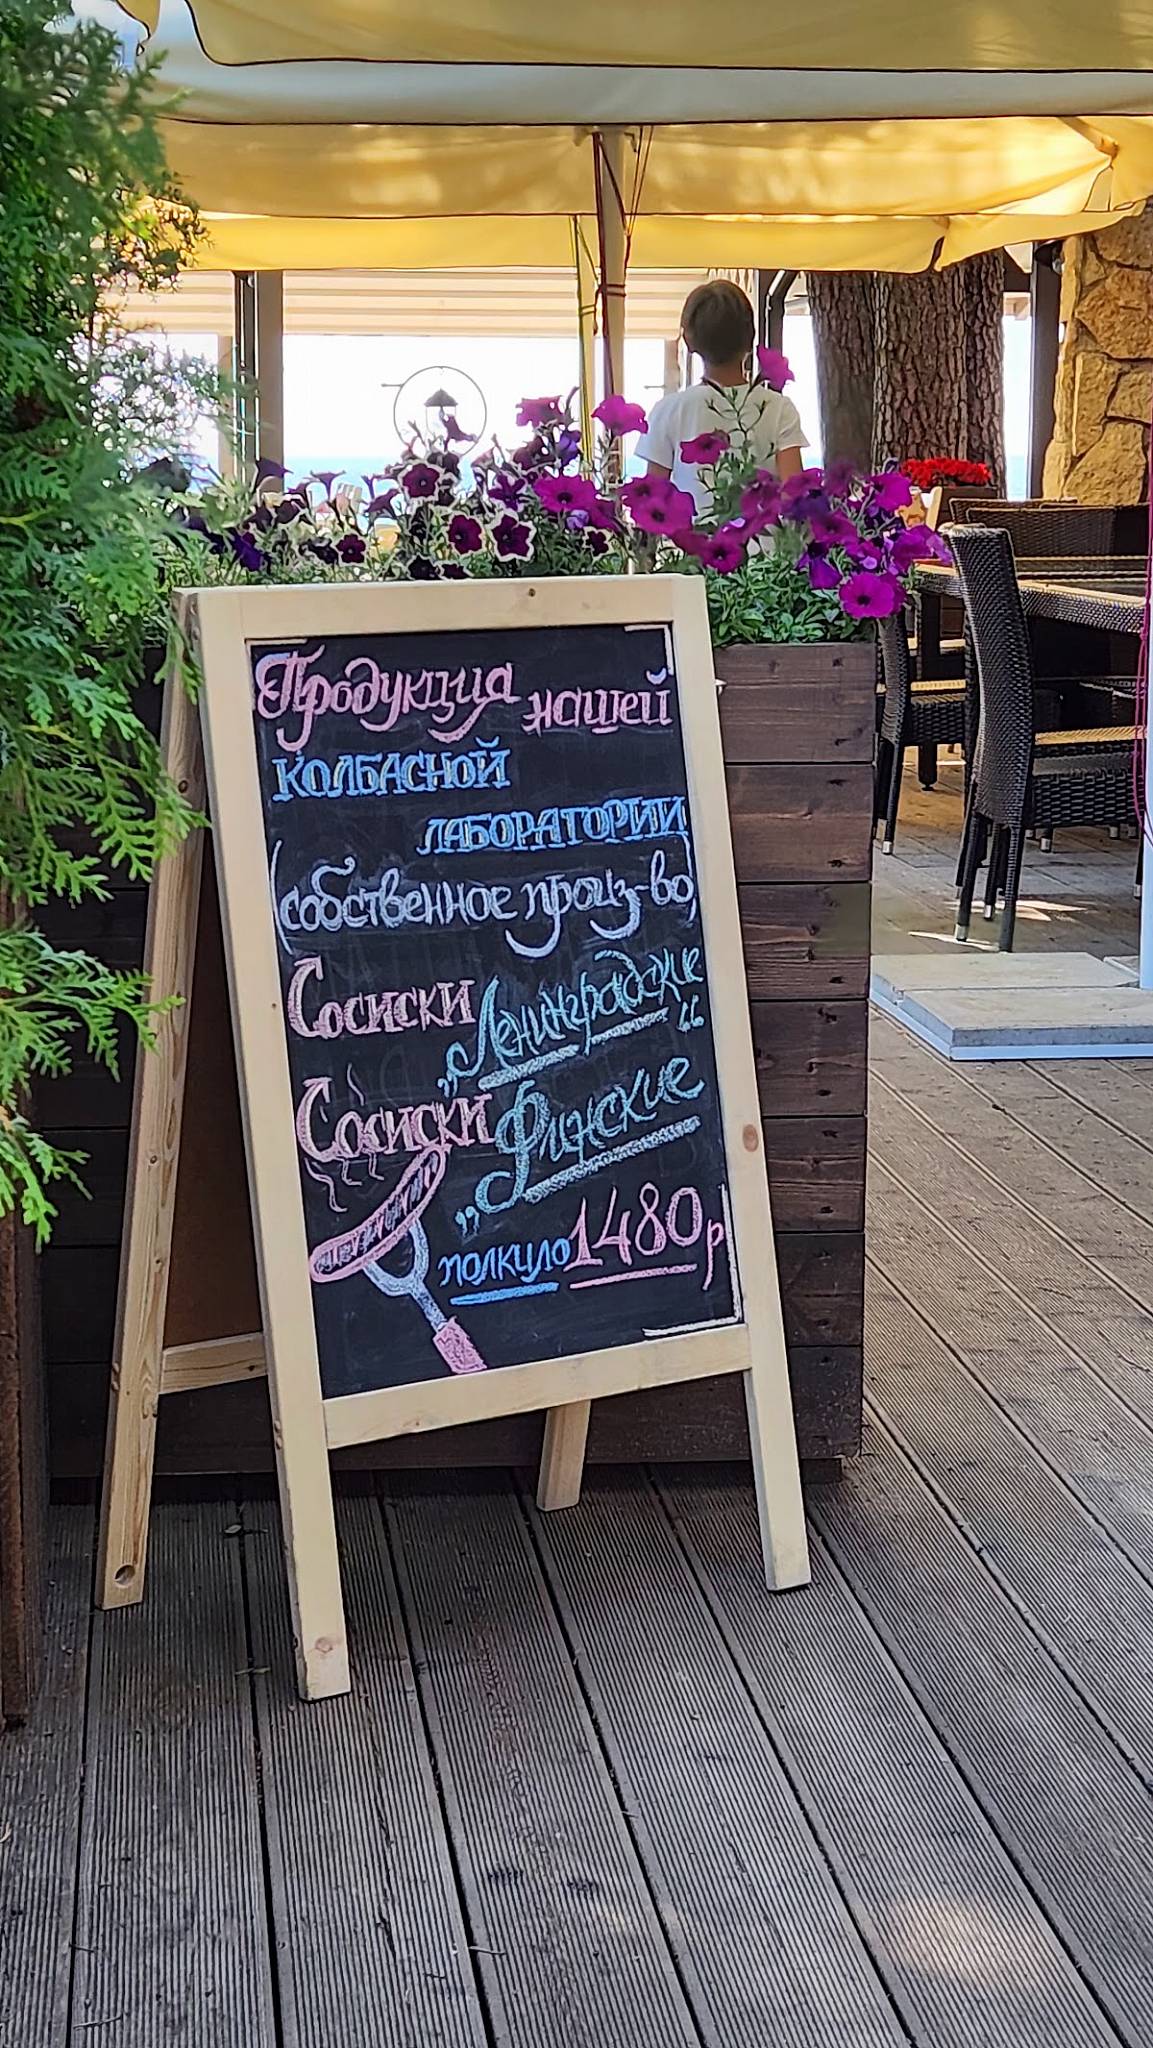 Продукция нашей
КОЛБАСНОЙ
ЛАБОРАТОРИИ
(собственное произ-во)
Сосиски „Ленинградские“
Сосиски „Финские
полкило 1480р